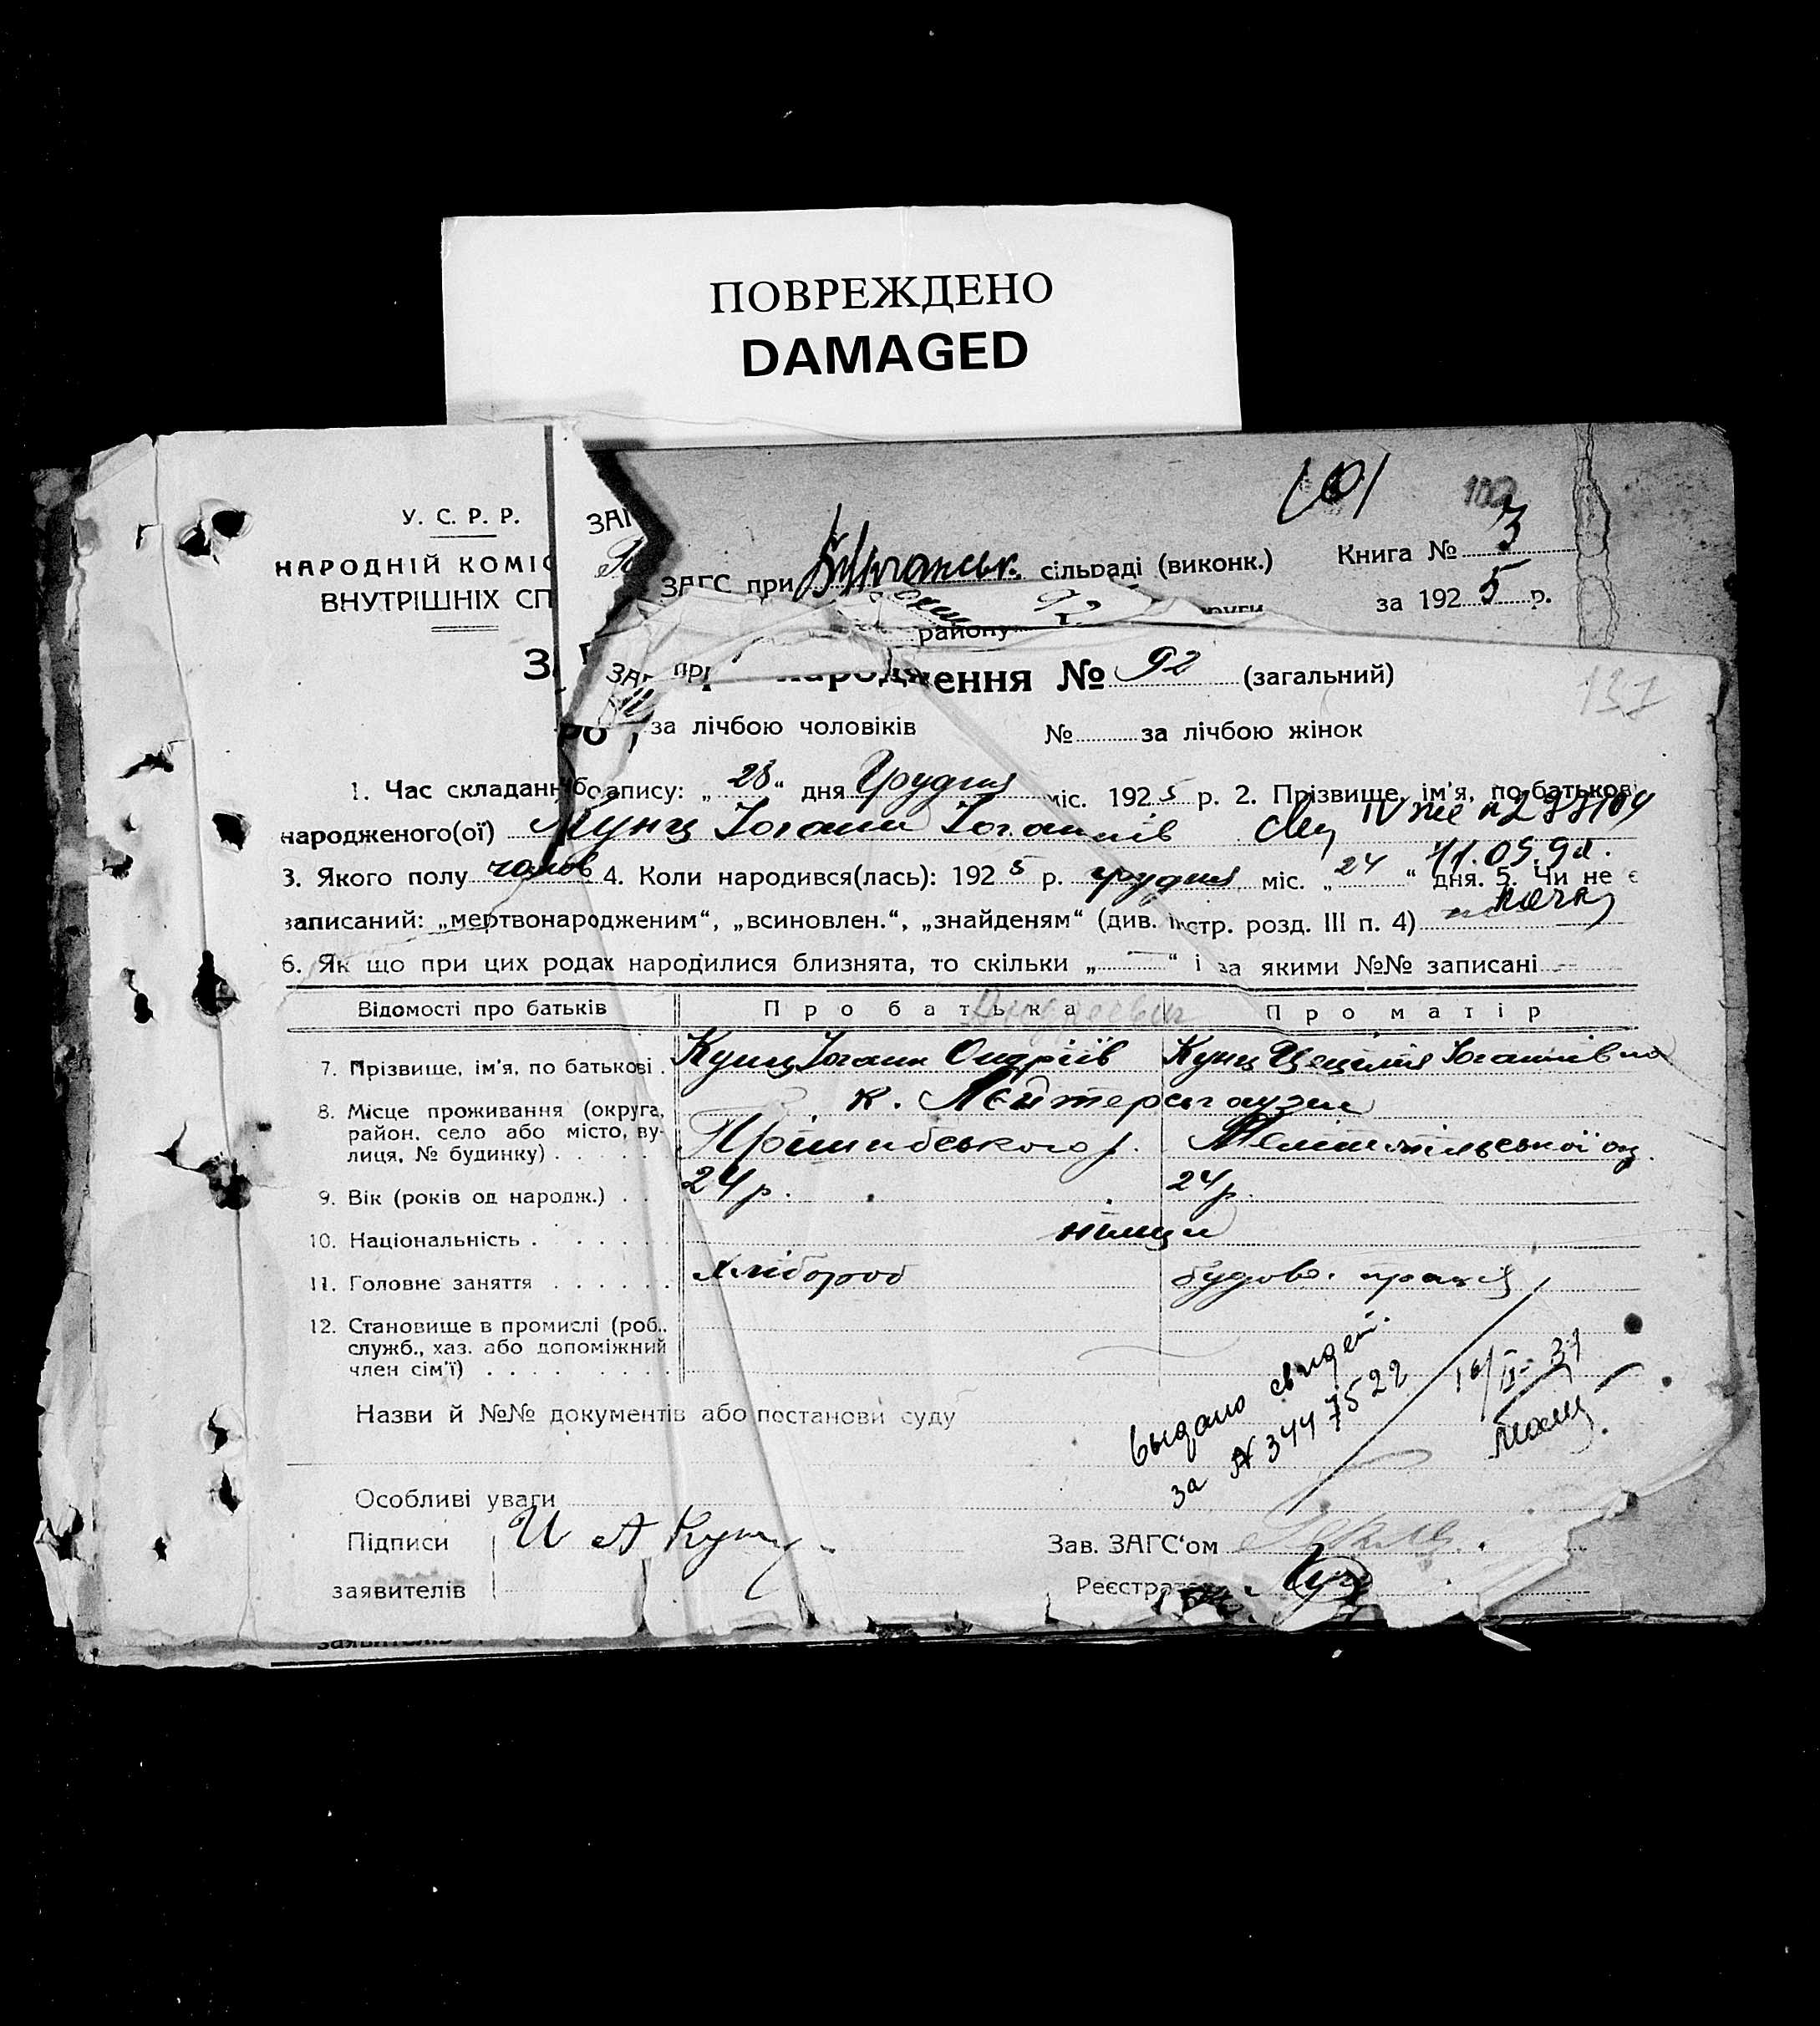 ПОВРЕЖДЕНО
DAMAGED
101
102
У. С. Р. Р.
НАРОДНІЙ КОМІС
ВНУТРІШНІХ СП
ЗАГ
ЗАГС при сільраді (виконк.)
Книга № 3
району
округи
за 1925 р.
народження № 92 (загальний)
137
за лічбою чоловіків № за лічбою жінок
1. Час складання запису: „28“ дня Грудня міс. 1925 р. 2. Прізвище, ім'я, по батькові
народженого(ої) Кунц Іоганн Іоганнів
IV
11.05.92.
3. Якого полу чолов 4. Коли народився(лась): 1925 р. грудня міс. „24“ дня. 5. Чи не є
записаний: „мертвонародженим“, „всиновлен.“, „знайденям“ (див. інстр. розд. III п. 4)
6. Як що при цих родах народилися близнята, то скільки „—“ і за якими №№ записані —
Відомості про батьків Про батька Про матір
Андреевич
7. Прізвище, ім'я, по батькові . Кунц Іоганн Ондріїв Кунц Цецилія Іоганнівна
8. Місце проживання (округа, к. Лєйтерсгаузен
район, село або місто, ву- Пришибського р. Мелітопільської ок.
лиця, № будинку) . . . .
9. Вік (років од народж.) . . 24 р. 24 р.
10. Національність . . . . . . німці
11. Головне заняття . . . . . . хлібороб будов. праця
12. Становище в промислі (роб.,
служб., хаз. або допоміжний
член сім'ї) . . . . . . . .
Назви й №№ документів або постанови суду
Выдано свидет.
за № 3447522
16/II-37
Особливі уваги
Підписи И А Кунц
Зав. ЗАГС'ом
заявителів
Реєстрат
заявителів